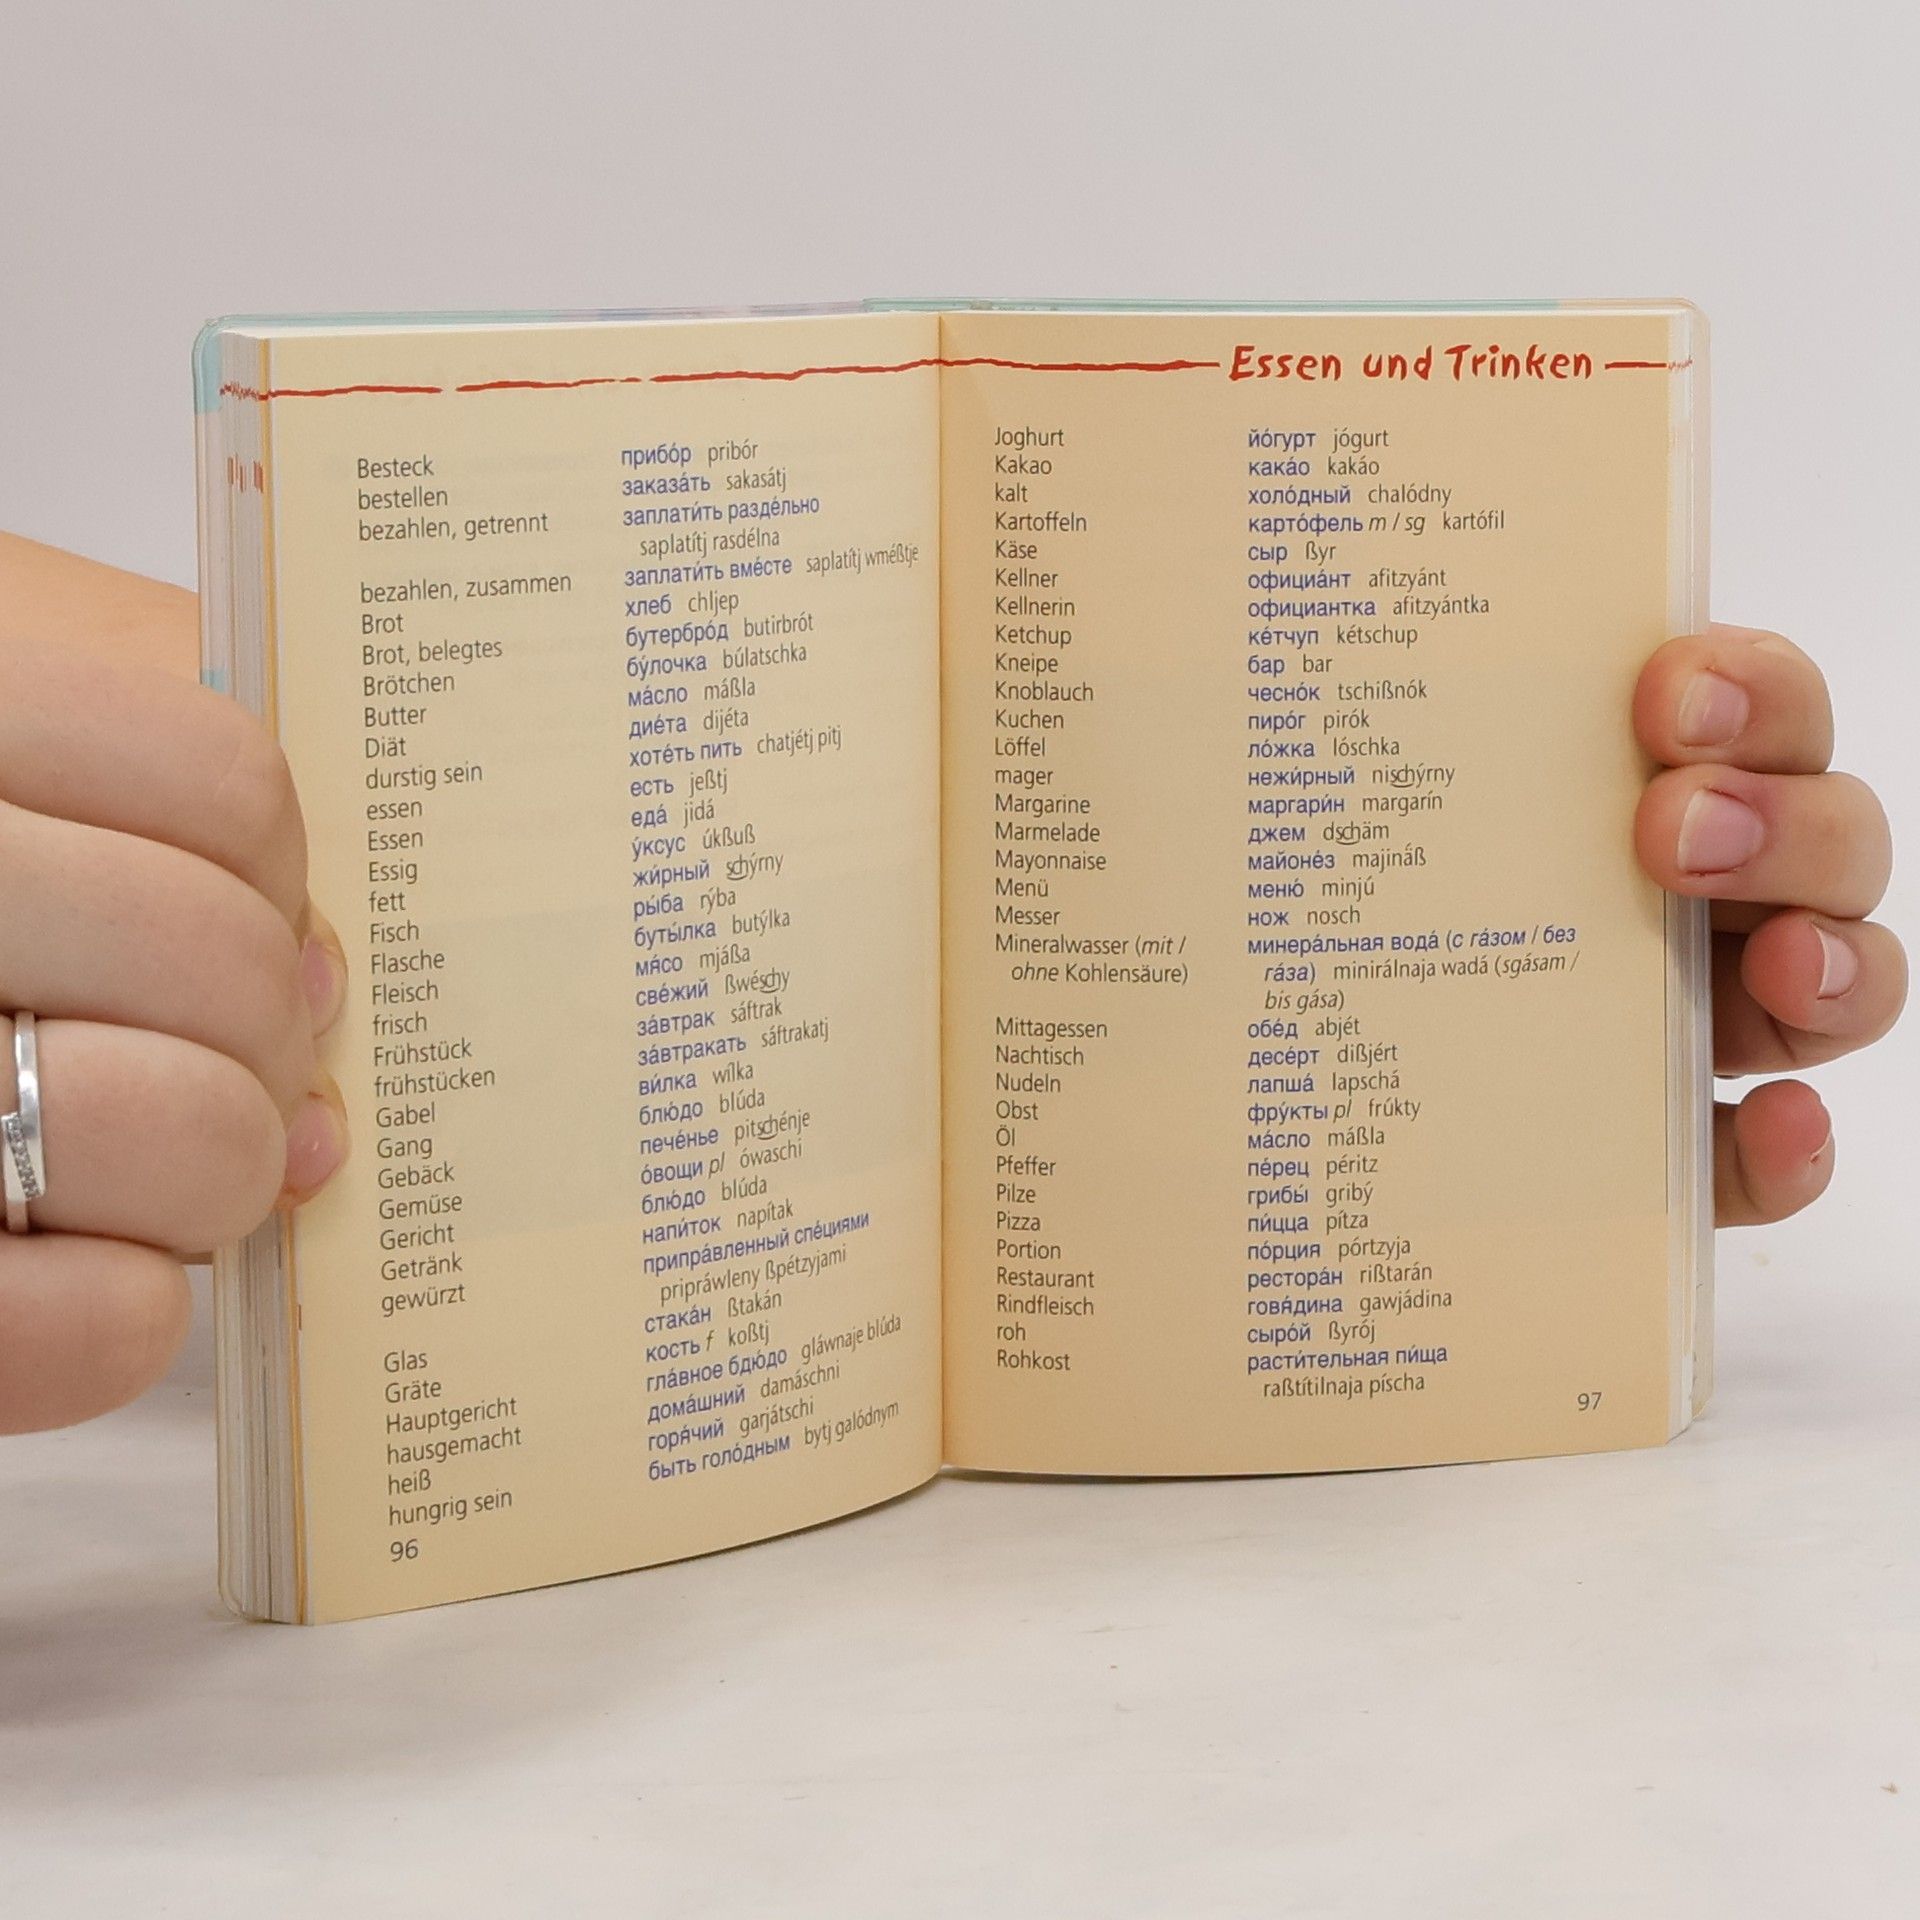 Besteck прибо́р pribór
bestellen заказа́ть sakasátj
bezahlen, getrennt заплати́ть разде́льно
saplatítj rasdélna
bezahlen, zusammen заплати́ть вме́сте saplatítj wméßtje
Brot хлеб chljep
Brot, belegtes бутербро́д butirbrót
Brötchen бу́лочка búlatschka
Butter ма́сло máßla
Diät дие́та dijéta
durstig sein хоте́ть пить chatjétj pitj
essen есть jeßtj
Essen еда́ jidá
Essig у́ксус úkßuß
fett жи́рный schýrny
Fisch ры́ба rýba
Flasche буты́лка butýlka
Fleisch мя́со mjáßa
frisch све́жий ßwéschy
Frühstück за́втрак sáftrak
frühstücken за́втракать sáftrakatj
Gabel ви́лка wílka
Gang блю́до blúda
Gebäck пече́нье pitschénje
Gemüse о́вощи pl ówaschi
Gericht блю́до blúda
Getränk напи́ток napítak
gewürzt припра́вленный спе́циями
pripráwleny ßpétzyjami
Glas стака́н ßtakán
Gräte кость f koßtj
Hauptgericht гла́вное бдю́до gláwnaje blúda
hausgemacht дома́шний damáschni
heiß горя́чий garjátschi
hungrig sein быть голо́дным bytj galódnym
96
Essen und Trinken
Joghurt йо́гурт jógurt
Kakao кака́о kakáo
kalt холо́дный chalódny
Kartoffeln карто́фель m / sg kartófil
Käse сыр ßyr
Kellner официа́нт afitzyánt
Kellnerin официантка afitzyántka
Ketchup ке́тчуп kétschup
Kneipe бар bar
Knoblauch чесно́к tschißnók
Kuchen пиро́г pirók
Löffel ло́жка lóschka
mager нежи́рный nischýrny
Margarine маргари́н margarín
Marmelade джем dschäm
Mayonnaise майоне́з majinä́ß
Menü меню́ minjú
Messer нож nosch
Mineralwasser (mit / минера́льная вода́ (с га́зом / без
ohne Kohlensäure) га́за) minirálnaja wadá (sgásam /
bis gása)
Mittagessen обе́д abjét
Nachtisch десе́рт dißjért
Nudeln лапша́ lapschá
Obst фру́кты pl frúkty
Öl ма́сло máßla
Pfeffer пе́рец péritz
Pilze грибы́ gribý
Pizza пи́цца pítza
Portion по́рция pórtzyja
Restaurant рестора́н rißtarán
Rindfleisch говя́дина gawjádina
roh сыро́й ßyrój
Rohkost расти́тельная пи́ща
raßtítilnaja píscha
97